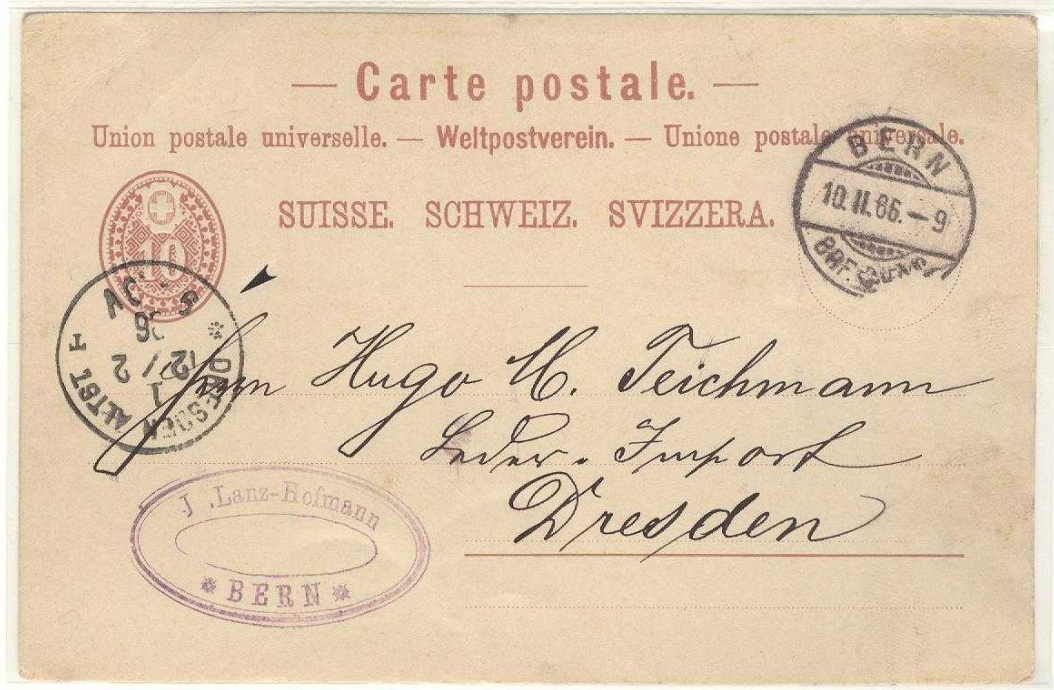 — Carte postale. —
Union postale universelle. — Weltpostverein. — Unione postale universale.
SUISSE. SCHWEIZ. SVIZZERA.
10
BERN
10.II.86.–9
BRF.
DRESDEN ALTST.
12/2
Herrn Hugo M. Teichmann
Leder-Import
Dresden
J. Lanz-Hofmann
* BERN *